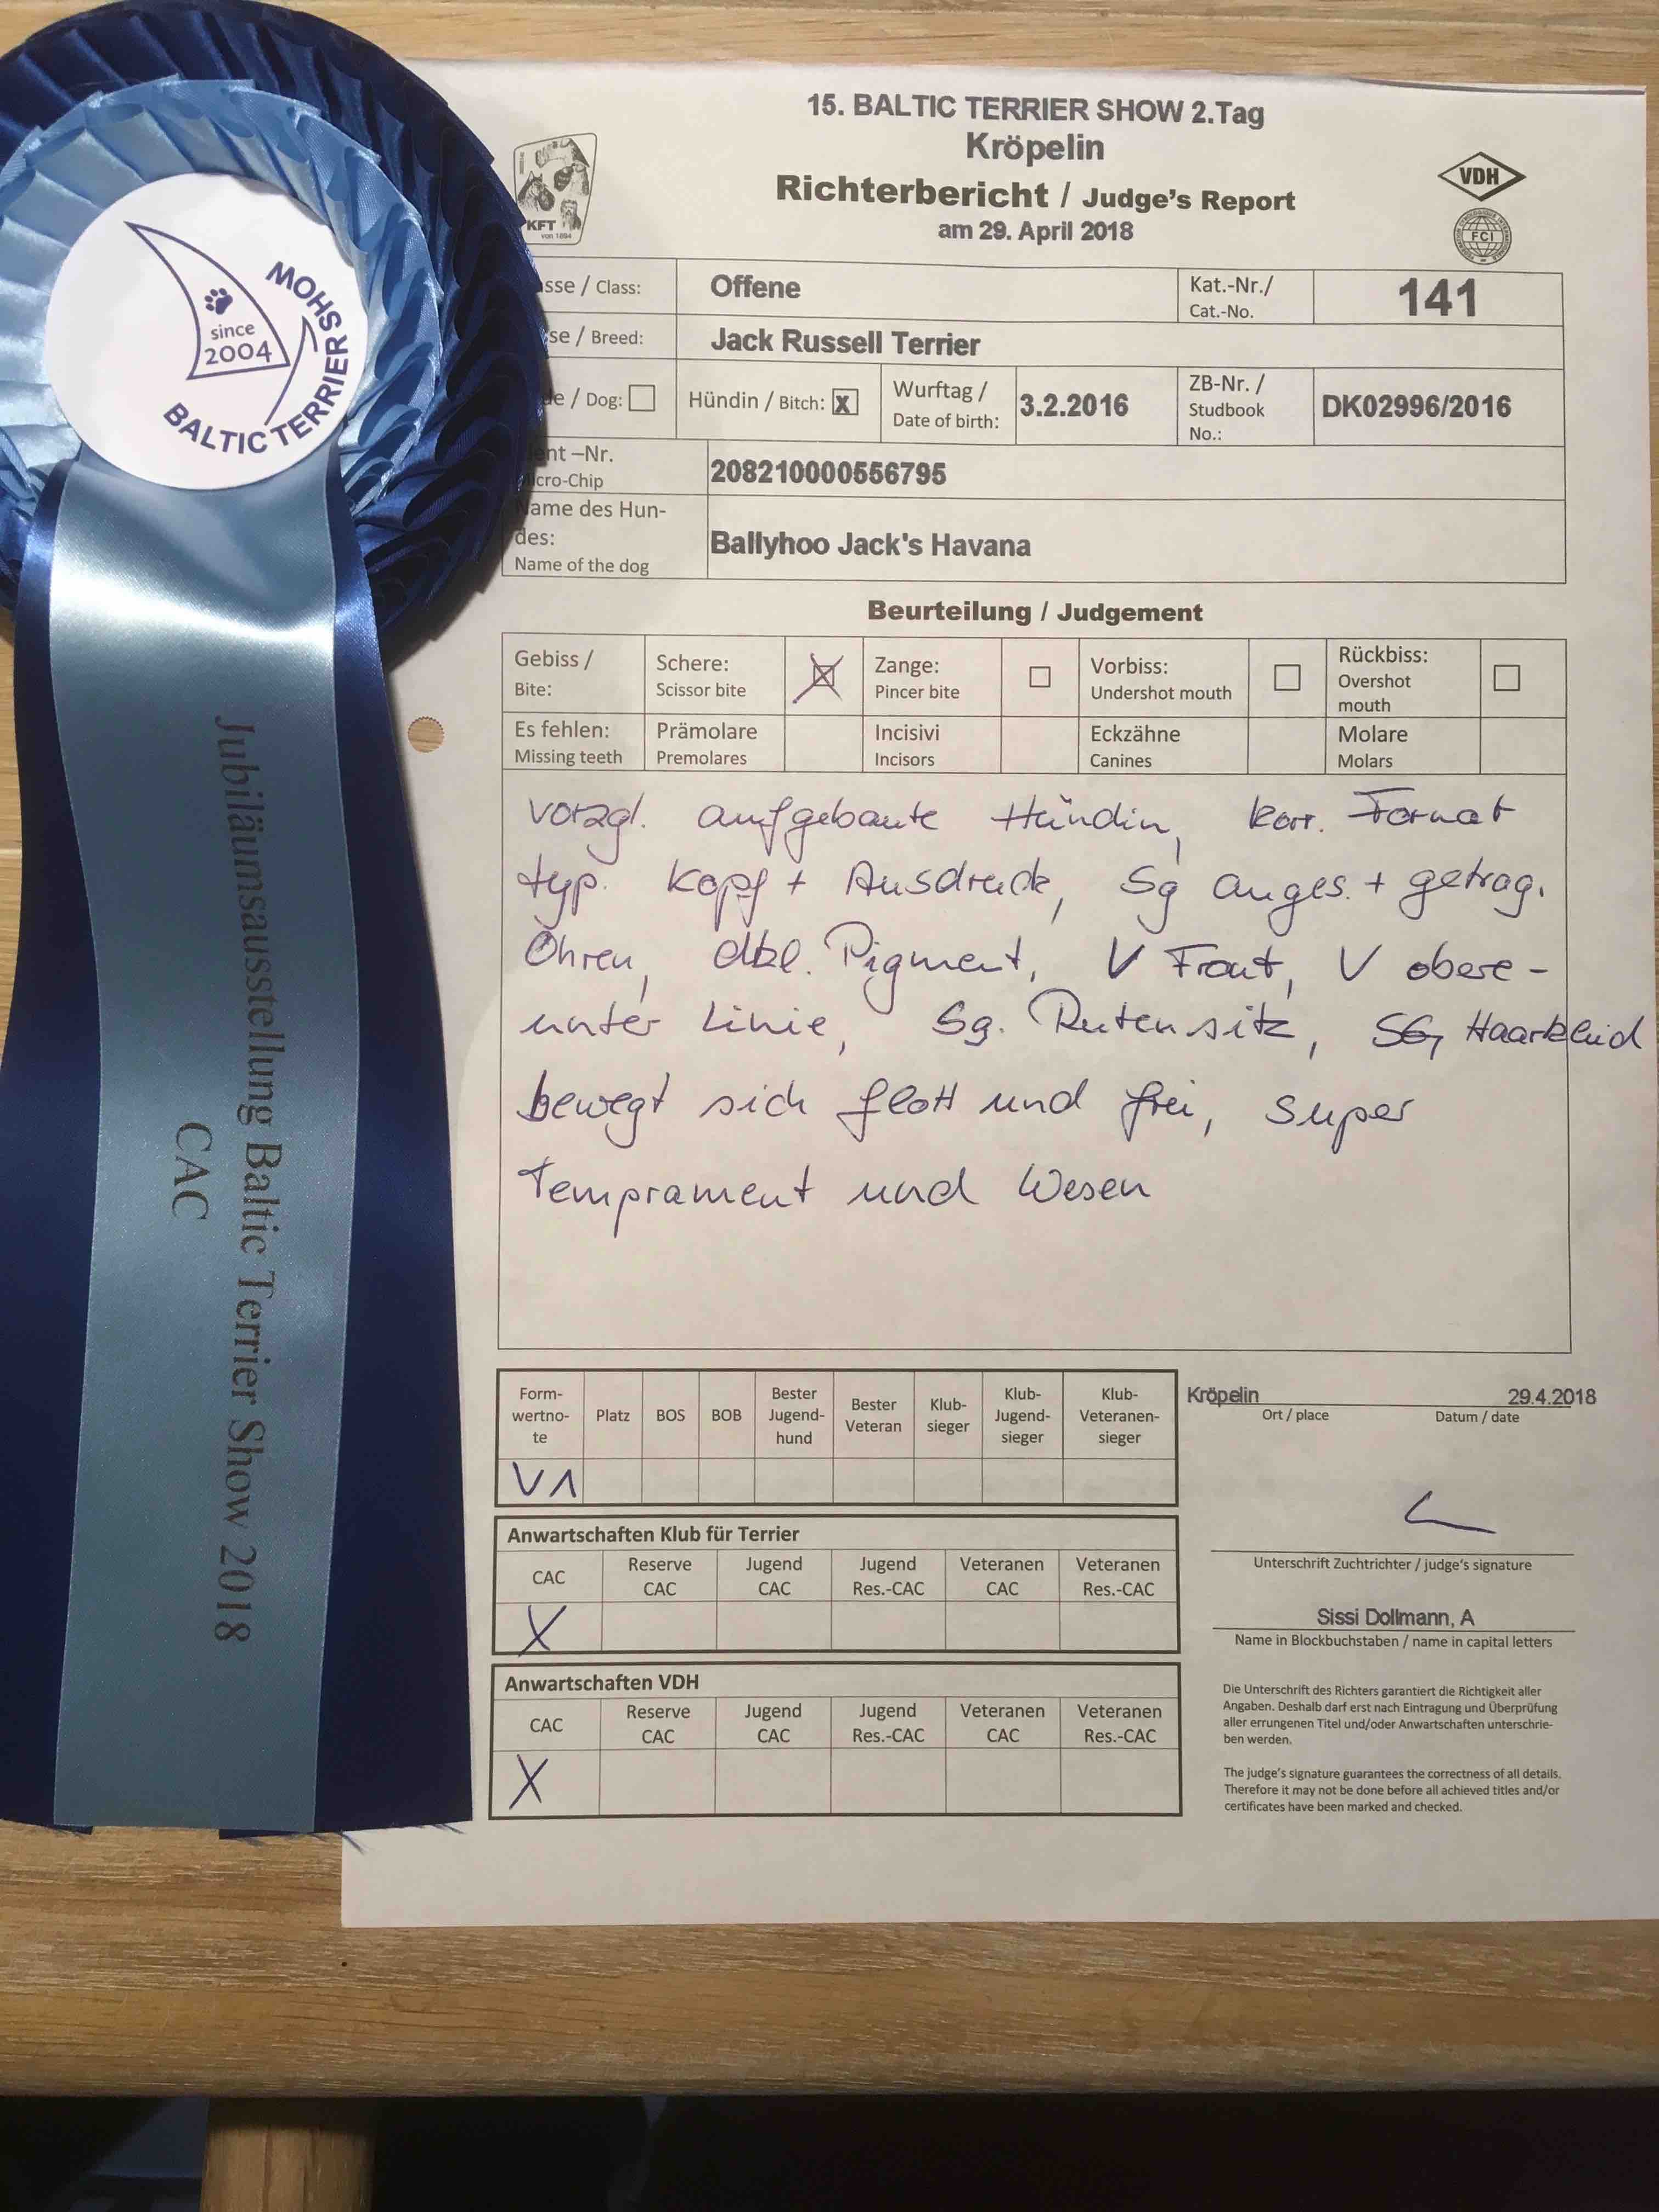 15. BALTIC TERRIER SHOW 2.Tag
Kröpelin
Richterbericht / Judge's Report
am 29. April 2018
KFT
von 1894
VDH
FCI
BALTIC TERRIER SHOW
since
2004
Jubiläumsausstellung Baltic Terrier Show 2018
CAC
sse / Class: Offene Kat.-Nr./ Cat.-No. 141
se / Breed: Jack Russell Terrier
e / Dog: Hündin / Bitch: X Wurftag / Date of birth: 3.2.2016 ZB-Nr. / Studbook No.: DK02996/2016
ent –Nr.
cro-Chip 208210000556795
Name des Hun-
des:
Name of the dog
Ballyhoo Jack's Havana
Beurteilung / Judgement
Gebiss / Bite: Schere: Scissor bite X Zange: Pincer bite Vorbiss: Undershot mouth Rückbiss: Overshot mouth
Es fehlen: Missing teeth Prämolare Premolares Incisivi Incisors Eckzähne Canines Molare Molars
vorzgl. aufgebaute Hündin, korr. Format
typ. Kopf + Ausdruck, Sg anges. + getrag.
Ohren, dkl. Pigment, V Front, V obere -
unter Linie, Sg. Rutensitz, SG Haarkleid
bewegt sich flott und frei, super
Temprament und Wesen
Form-
wertno-
te
Platz BOS BOB Bester Jugend-hund Bester Veteran Klub-sieger Klub-Jugend-sieger Klub-Veteranen-sieger
V1
Kröpelin 29.4.2018
Ort / place Datum / date
Anwartschaften Klub für Terrier
CAC Reserve CAC Jugend CAC Jugend Res.-CAC Veteranen CAC Veteranen Res.-CAC
X
Unterschrift Zuchtrichter / judge's signature
Sissi Dollmann, A
Name in Blockbuchstaben / name in capital letters
Anwartschaften VDH
CAC Reserve CAC Jugend CAC Jugend Res.-CAC Veteranen CAC Veteranen Res.-CAC
X
Die Unterschrift des Richters garantiert die Richtigkeit aller
Angaben. Deshalb darf erst nach Eintragung und Überprüfung
aller errungenen Titel und/oder Anwartschaften unterschrie-
ben werden.
The judge's signature guarantees the correctness of all details.
Therefore it may not be done before all achieved titles and/or
certificates have been marked and checked.